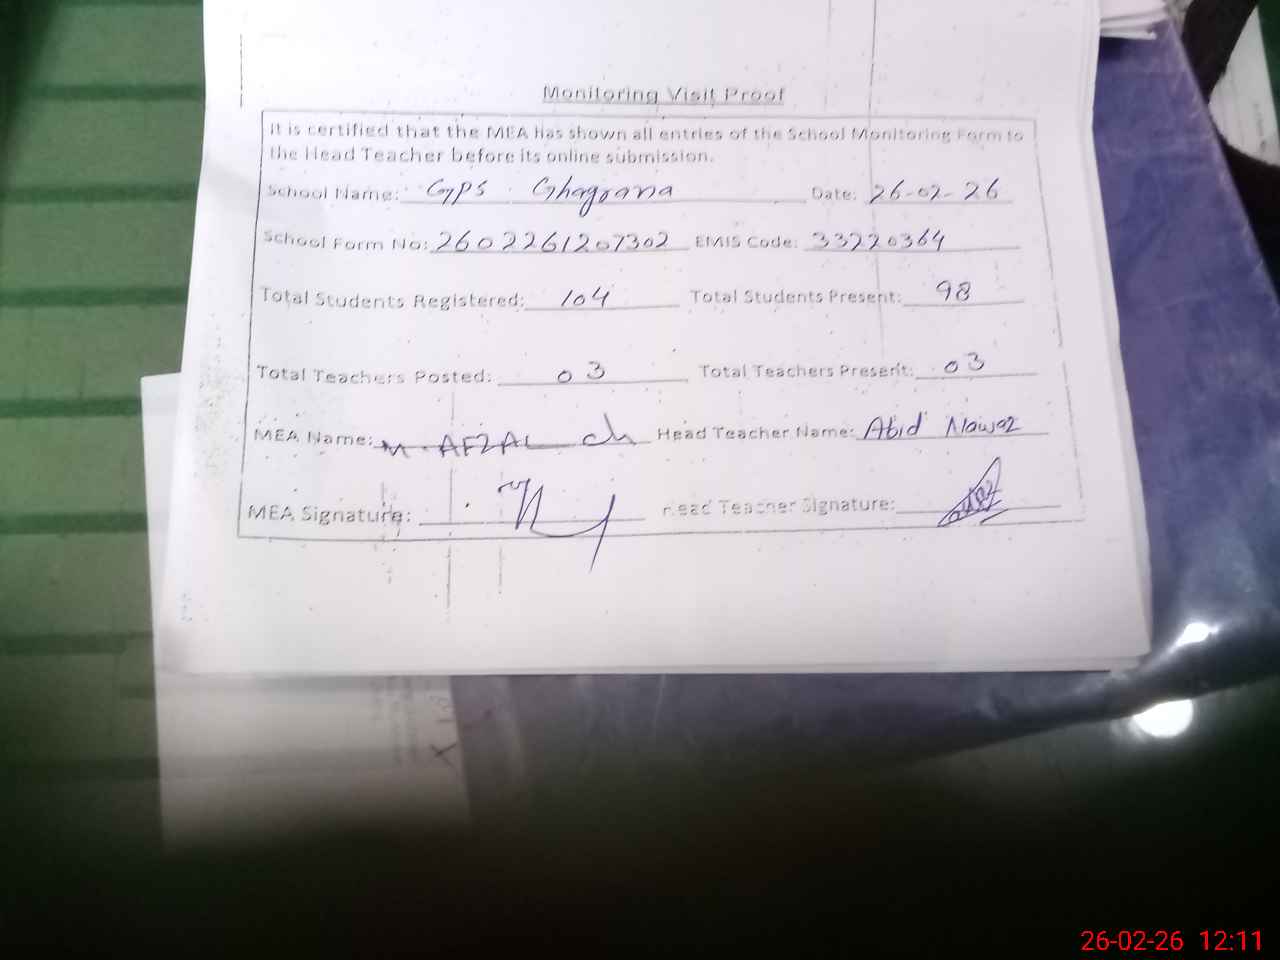 Monitoring Visit Proof
It is certified that the MEA has shown all entries of the School Monitoring Form to
the Head Teacher before its online submission.
School Name: GPS Ghagrana Date: 26-02-26
School Form No: 2602261207302 EMIS Code: 33220364
Total Students Registered: 104 Total Students Present: 98
Total Teachers Posted: 03 Total Teachers Present: 03
MEA Name: M. AFZAL ch Head Teacher Name: Abid Nawaz
MEA Signature: Head Teacher Signature:
26-02-26 12:11